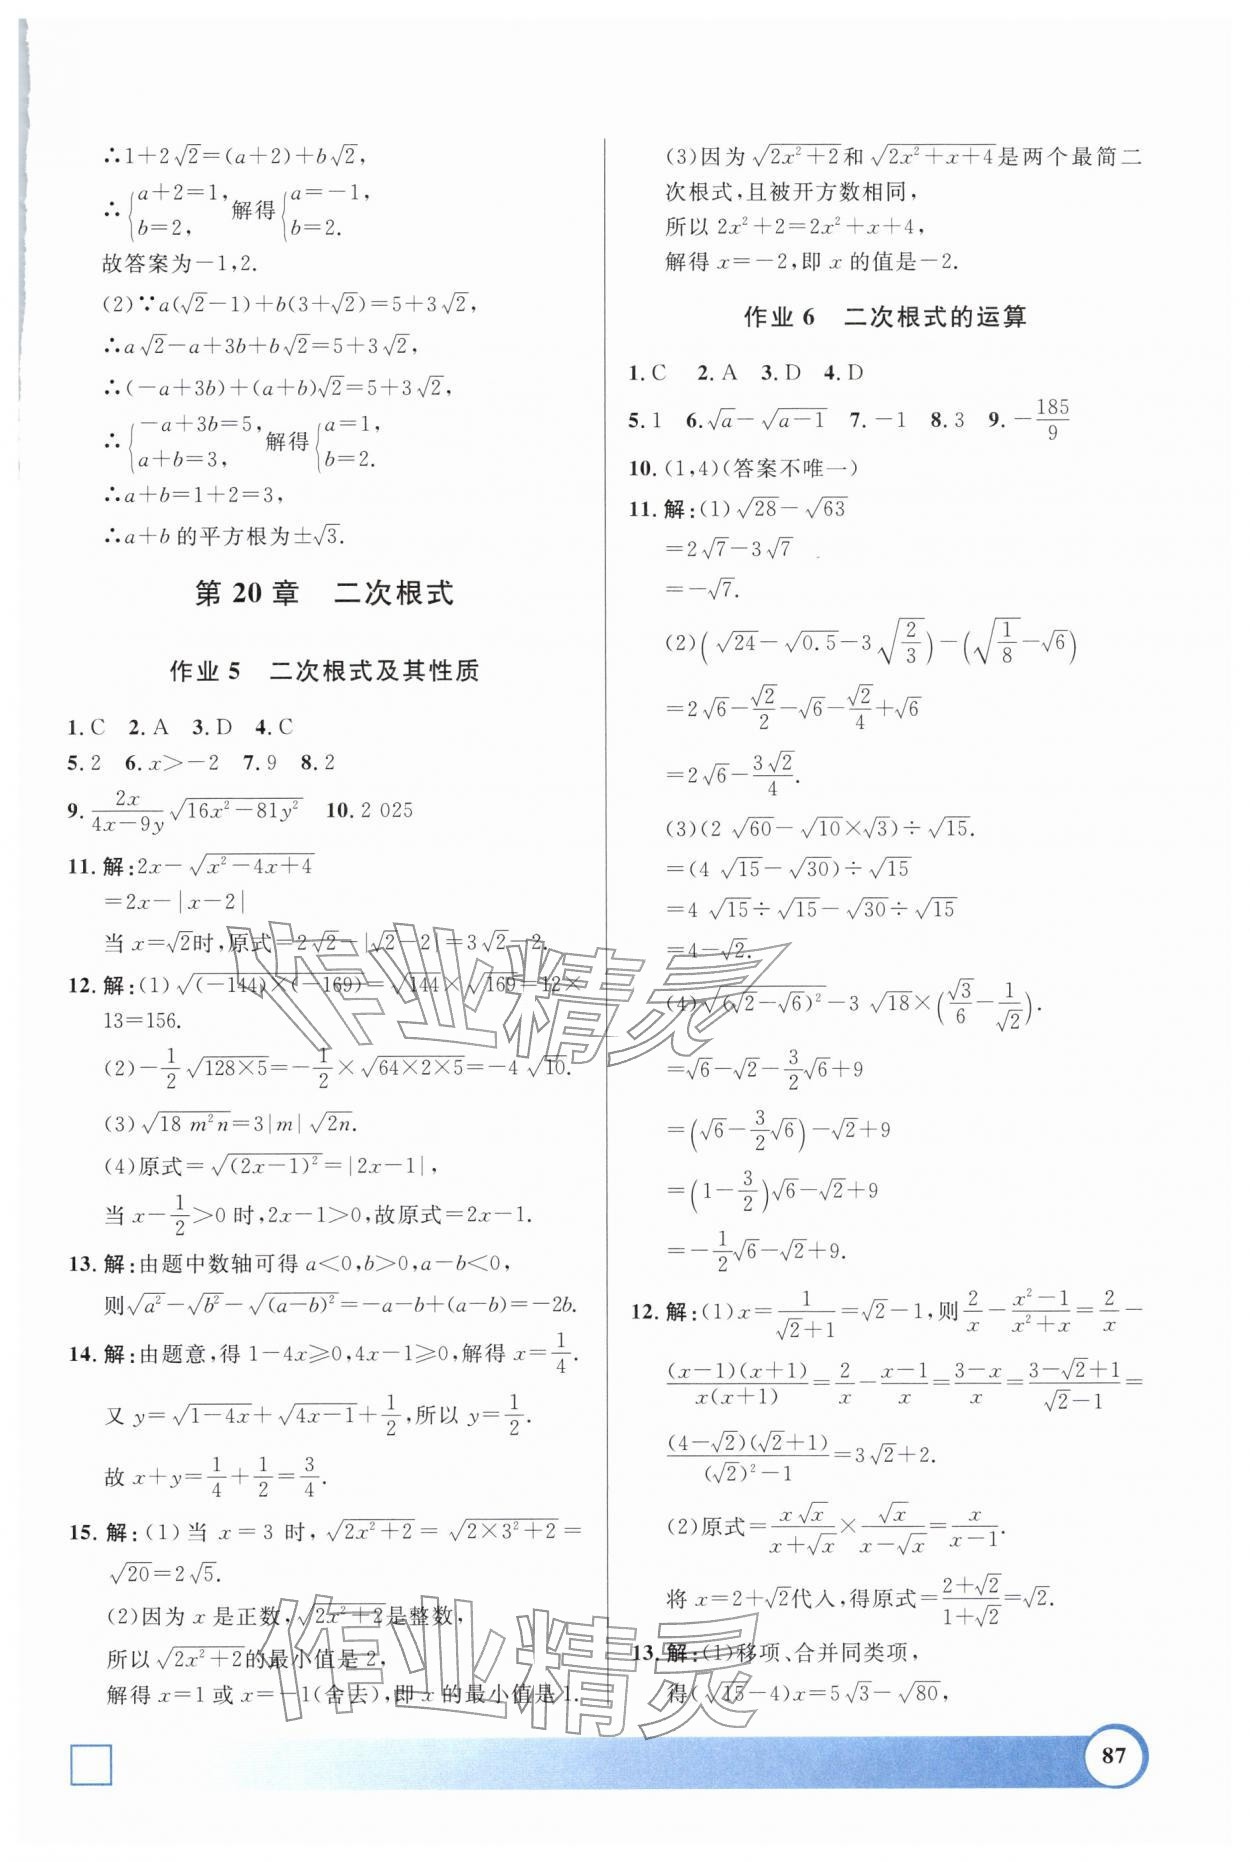 ∴1+2√2=(a+2)+b√2,
∴{a+2=1, b=2, 解得{a=-1, b=2.
故答案为-1,2.
(2)∵a(√2-1)+b(3+√2)=5+3√2,
∴a√2-a+3b+b√2=5+3√2,
∴(-a+3b)+(a+b)√2=5+3√2,
∴{-a+3b=5, a+b=3, 解得{a=1, b=2.
∴a+b=1+2=3,
∴a+b的平方根为±√3.
第20章 二次根式
作业5 二次根式及其性质
1.C 2.A 3.D 4.C
5.2 6.x>-2 7.9 8.2
9.2x/(4x-9y)√(16x²-81y²) 10.2 025
11.解:2x-√(x²-4x+4)
=2x-|x-2|
当x=√2时,原式=2√2-|√2-2|=3√2-2.
12.解:(1)√((-144)×(-169))=√144×√169=12×
13=156.
(2)-1/2√(128×5)=-1/2×√(64×2×5)=-4√10.
(3)√(18 m²n)=3|m|√(2n).
(4)原式=√((2x-1)²)=|2x-1|,
当x-1/2>0时,2x-1>0,故原式=2x-1.
13.解:由题中数轴可得a<0,b>0,a-b<0,
则√(a²)-√(b²)-√((a-b)²)=-a-b+(a-b)=-2b.
14.解:由题意,得1-4x≥0,4x-1≥0,解得x=1/4.
又y=√(1-4x)+√(4x-1)+1/2,所以y=1/2.
故x+y=1/4+1/2=3/4.
15.解:(1)当x=3时,√(2x²+2)=√(2×3²+2)=
√20=2√5.
(2)因为x是正数,√(2x²+2)是整数,
所以√(2x²+2)的最小值是2,
解得x=1或x=-1(舍去),即x的最小值是1.
(3)因为√(2x²+2)和√(2x²+x+4)是两个最简二
次根式,且被开方数相同,
所以2x²+2=2x²+x+4,
解得x=-2,即x的值是-2.
作业6 二次根式的运算
1.C 2.A 3.D 4.D
5.1 6.√a-√(a-1) 7.-1 8.3 9.-185/9
10.(1,4)(答案不唯一)
11.解:(1)√28-√63
=2√7-3√7
=-√7.
(2)(√24-√0.5-3√(2/3))-(√(1/8)-√6)
=2√6-√2/2-√6-√2/4+√6
=2√6-3√2/4.
(3)(2√60-√10×√3)÷√15.
=(4√15-√30)÷√15
=4√15÷√15-√30÷√15
=4-√2.
(4)√((√2-√6)²)-3√18×(√3/6-1/√2).
=√6-√2-3/2√6+9
=(√6-3/2√6)-√2+9
=(1-3/2)√6-√2+9
=-1/2√6-√2+9.
12.解:(1)x=1/(√2+1)=√2-1,则2/x-(x²-1)/(x²+x)=2/x-
(x-1)(x+1)/(x(x+1))=2/x-(x-1)/x=(3-x)/x=(3-√2+1)/(√2-1)=
(4-√2)(√2+1)/((√2)²-1)=3√2+2.
(2)原式=x√x/(x+√x)×√x/(x-√x)=x/(x-1).
将x=2+√2代入,得原式=(2+√2)/(1+√2)=√2.
13.解:(1)移项、合并同类项,
得(√15-4)x=5√3-√80,
87
作业精灵
作业精灵